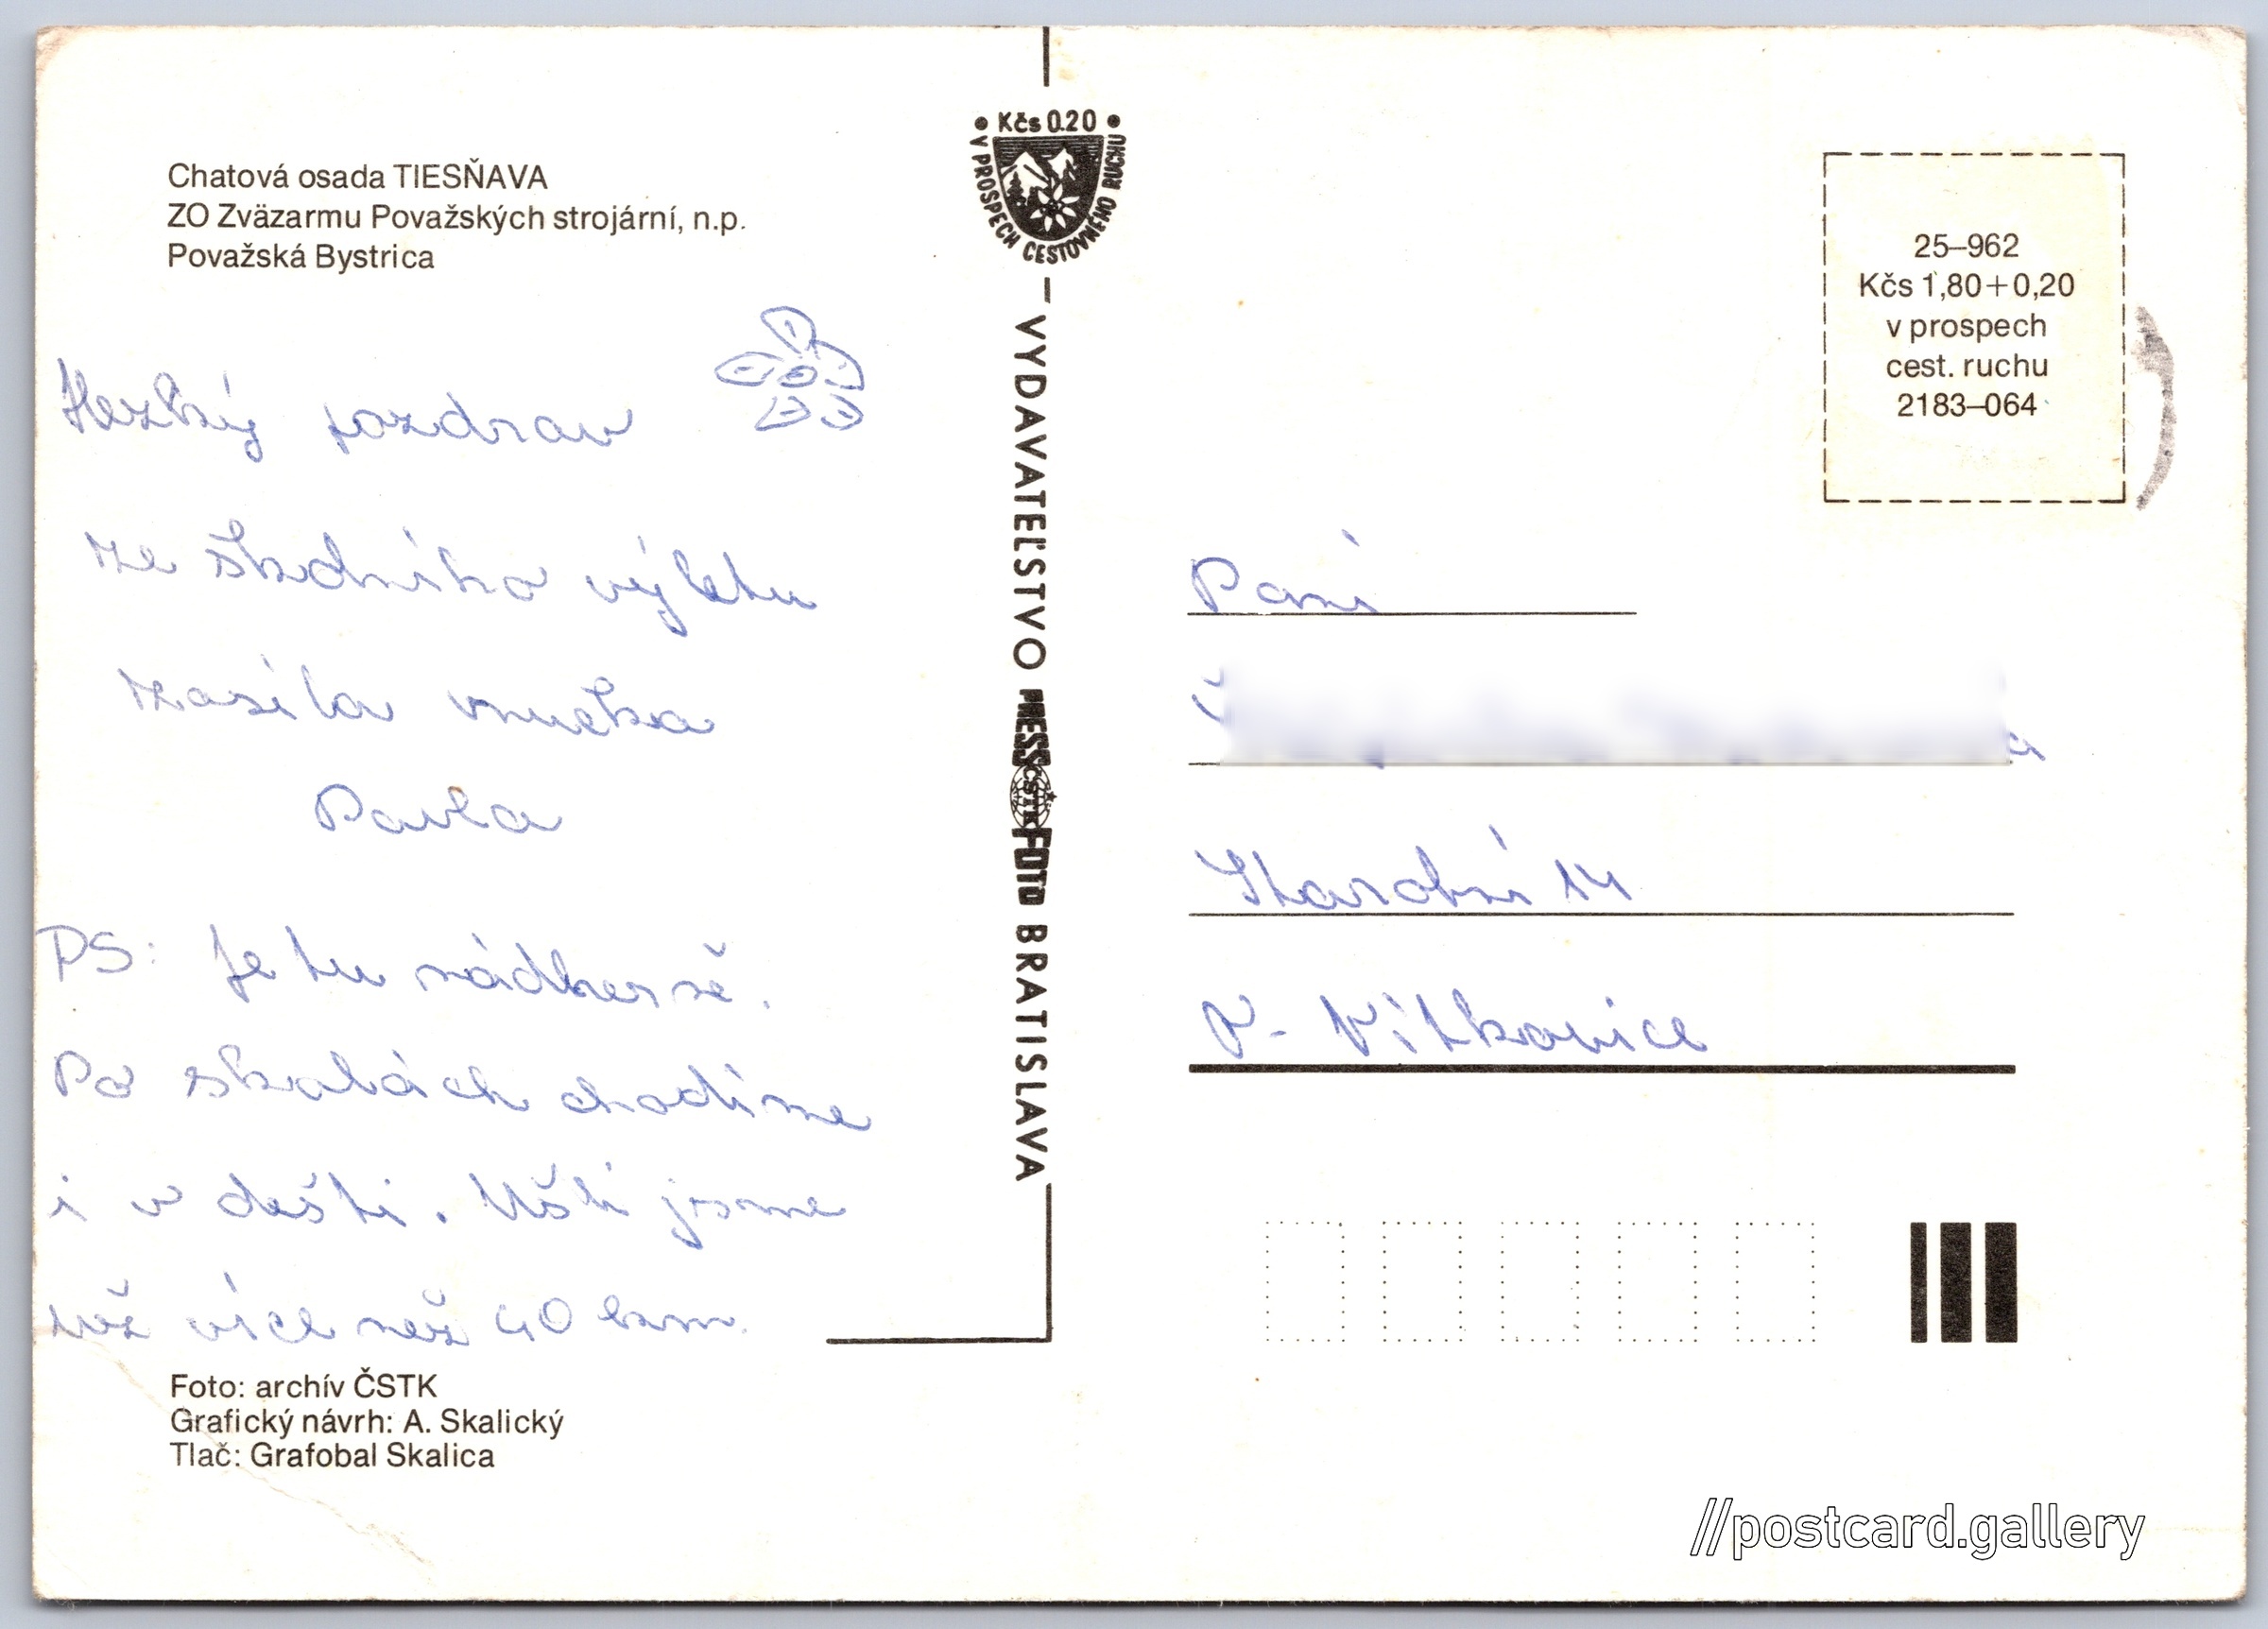 Chatová osada TIESŇAVA
ZO Zväzarmu Považských strojární, n.p.
Považská Bystrica
Hezký pozdrav
ze školního výletu
zasílá vnučka
Pavla
PS: Je tu nádherně.
Po skalách chodíme
i v dešti. Ušli jsme
už více než 40 km.
Foto: archív ČSTK
Grafický návrh: A. Skalický
Tlač: Grafobal Skalica
• Kčs 0.20 •
V PROSPECH CESTOVNÉHO RUCHU
VYDAVATEĽSTVO PRESSFOTO BRATISLAVA
ČSTK
25–962
Kčs 1,80+0,20
v prospech
cest. ruchu
2183–064
Paní
14
- Vítkovice
//postcard.gallery